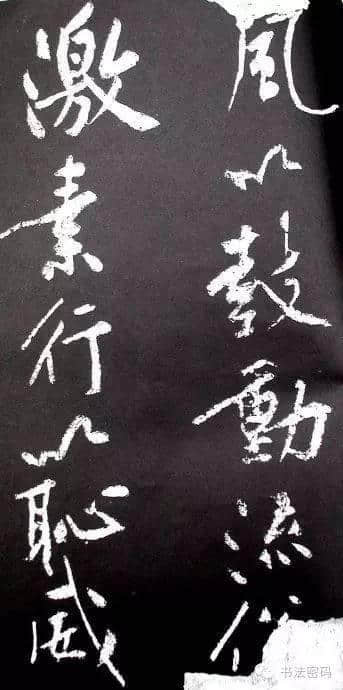 風以鼓動流俗
激素行以恥威
书法密码